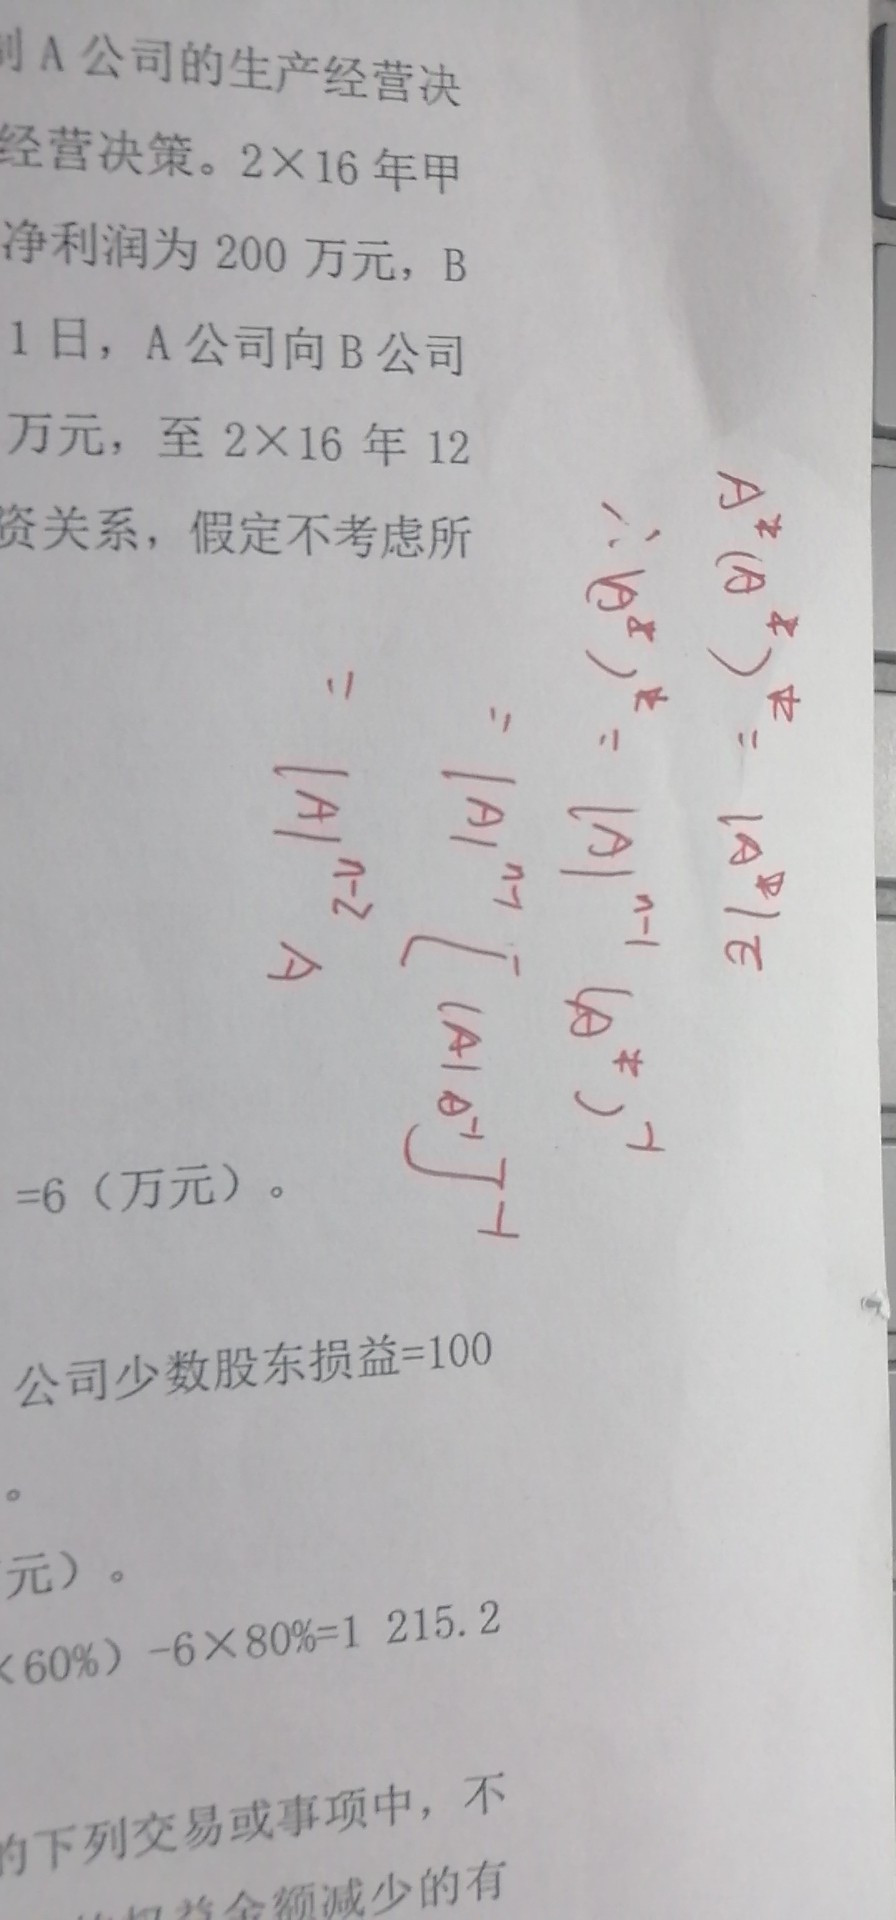 制 A 公司的生产经营决
经营决策。2×16 年甲
净利润为 200 万元，B
1 日，A 公司向 B 公司
万元，至 2×16 年 12
资关系，假定不考虑所
A*(A*)* = |A*|E
∴(A*)* = |A|ⁿ⁻¹ (A*)⁻¹
= |A|ⁿ⁻¹ [|A|A⁻¹]⁻¹
= |A|ⁿ⁻² A
=6（万元）。
公司少数股东损益=100
。
元）。
×60%）-6×80%=1 215.2
的下列交易或事项中，不
权益金额减少的有